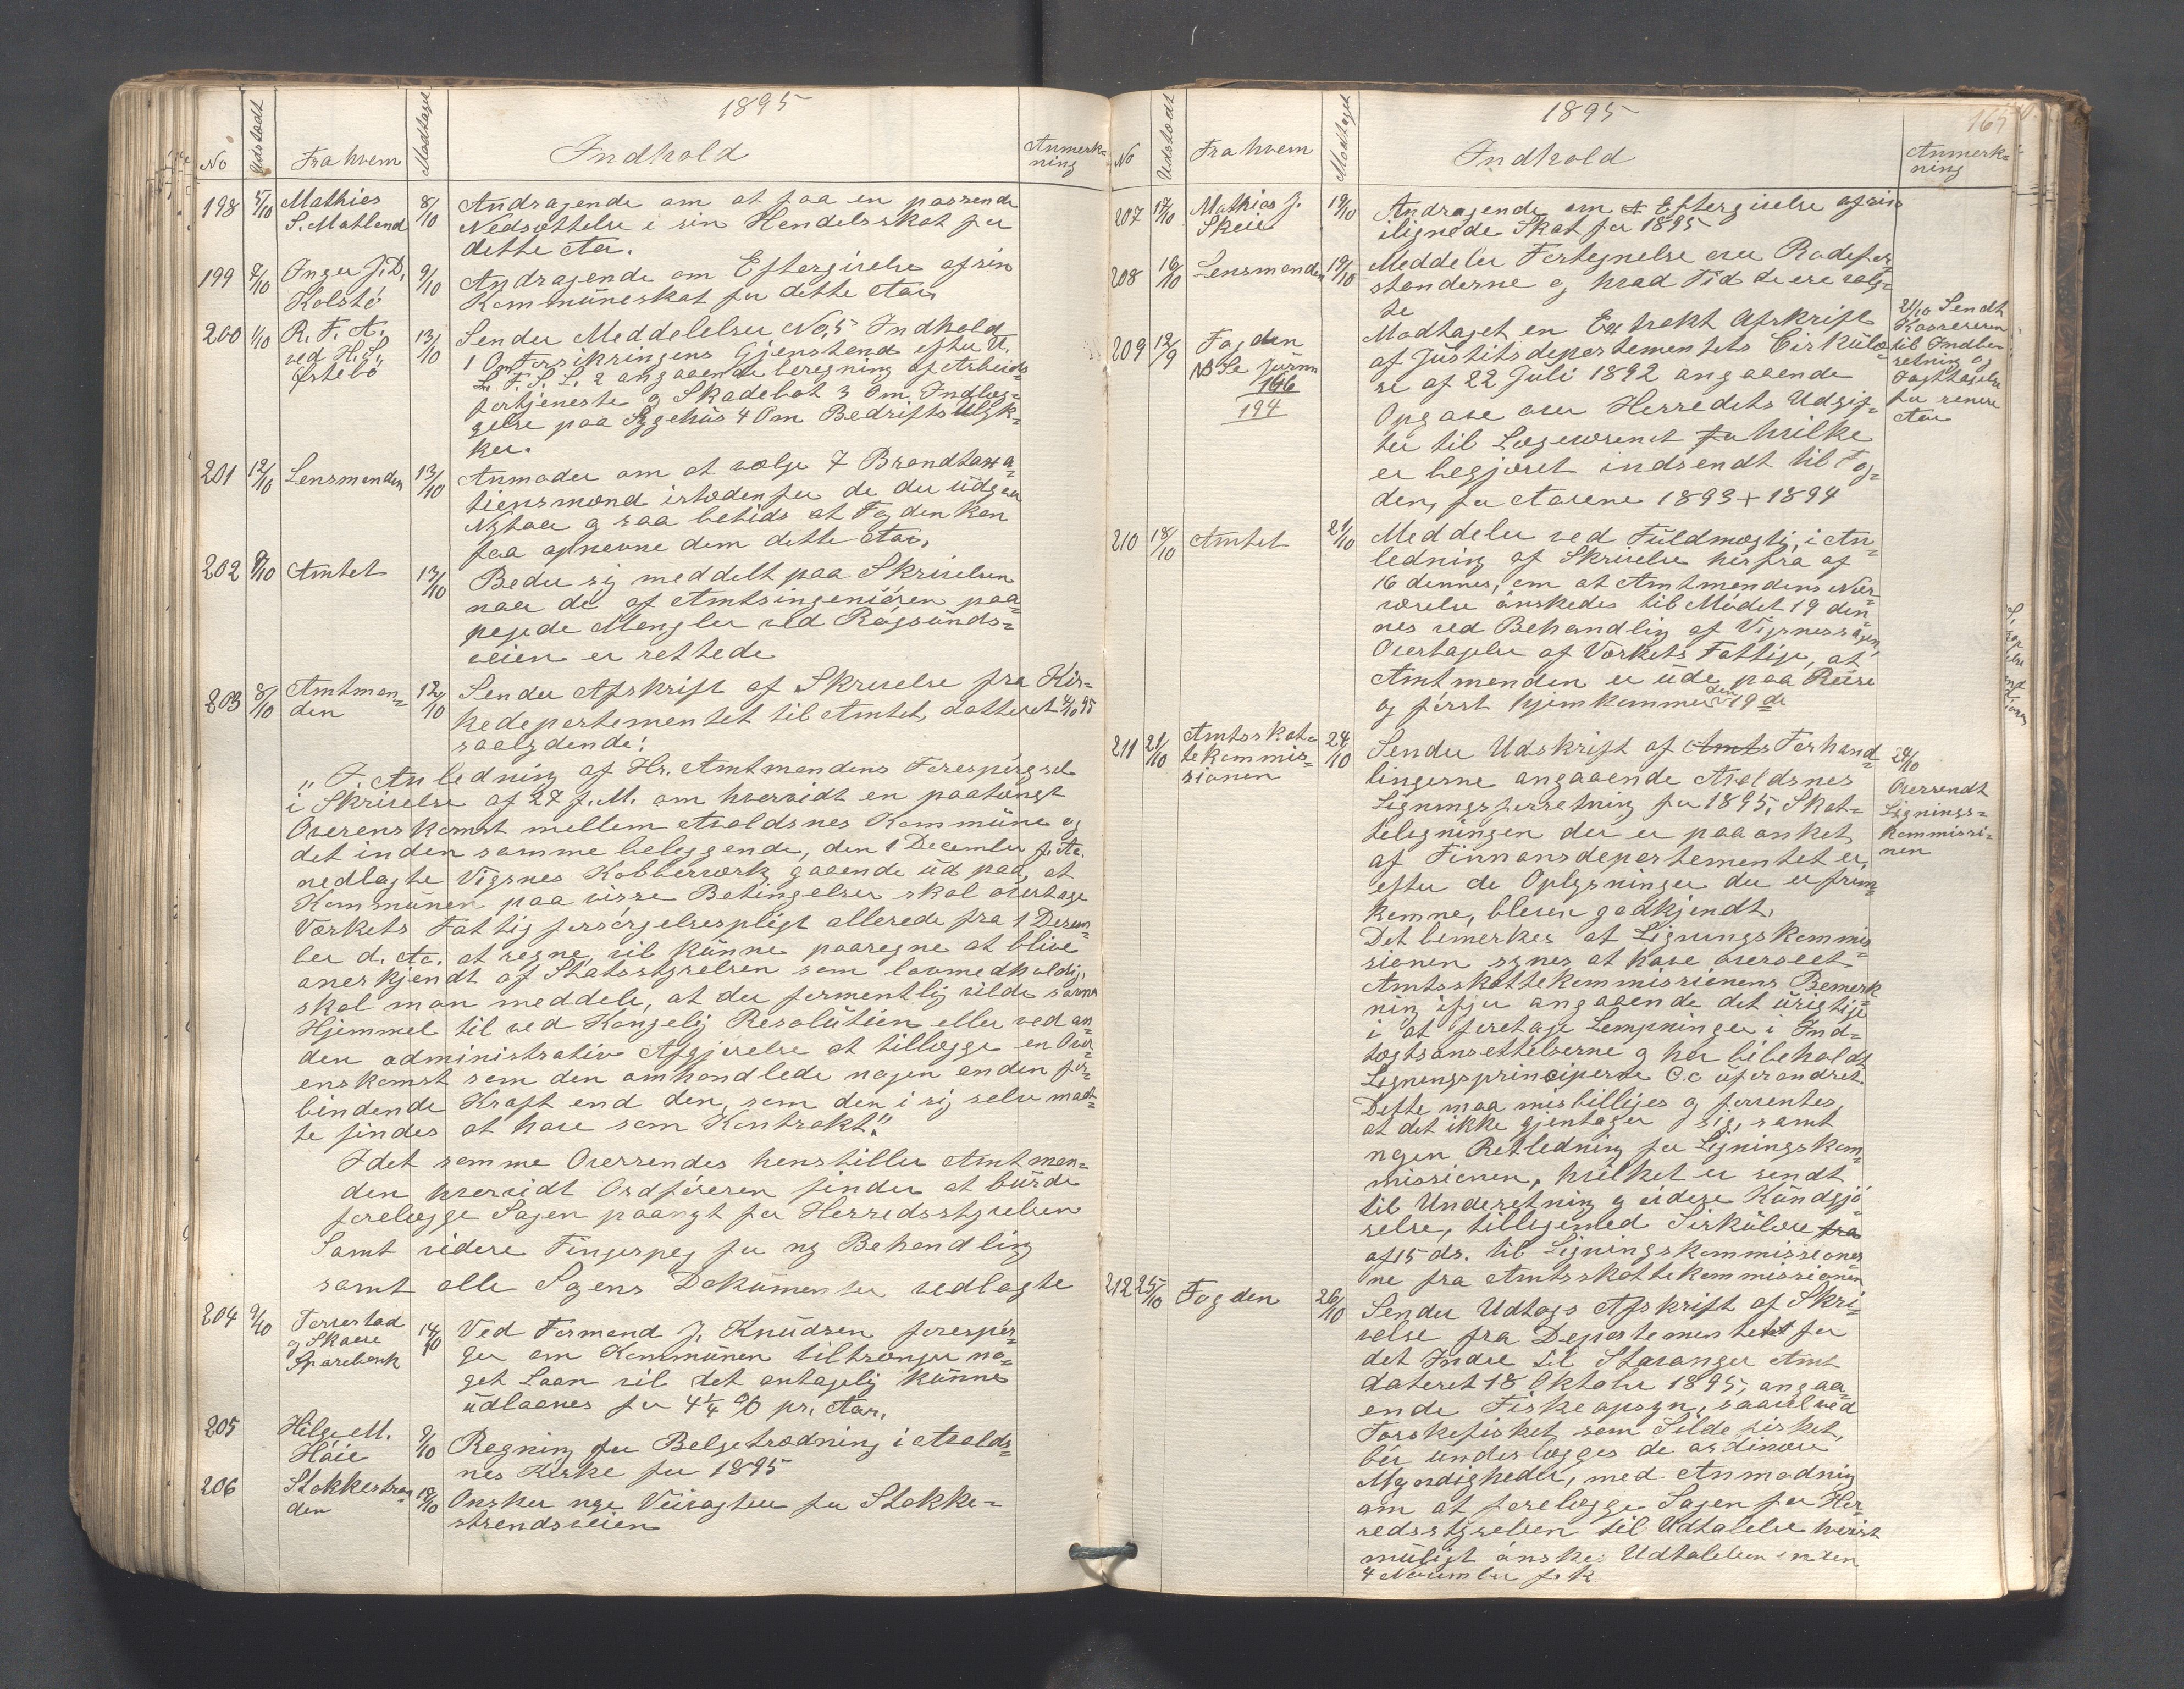 1895
No Udstødt Fra hvem Modtaget Indhold Anmerk=
ning
198 5/10 Mathies 8/10 Andragende om at faa en passende
S. Matland Nedsættelse i sin Handelsskat for
dette Aar.
199 7/10 Inger J. D. 9/10 Andragende om Eftergivelse af sin
Kolstö Kommüneskat for dette Aar
200 1/10 R. F. A. 13/10 Sender Meddelelser No, 5 Indhold
ved H. S. 1 Om Forsikringens Gjenstand efter U.
Østebö L. F. S. L. 2 angaaende beregning af Arbeids
fortjeneste og Skadebot 3 Om Indlæg=
gelse paa Sygehüs 4 Om Bedrifts Ulyk=
ker.
201 12/10 Lensmanden 13/10 Anmoder om at vælge 7 Brandtaxa=
tionsmænd istædenfor de der üdgaar
Nytaar og saa betids at Fogden kan
faa opnevne dem dette Aar,
202 9/10 Amtet 13/10 Beder sig meddelt paa Skrivelsen
naar de af Amtsingeniören paa=
pegede Mangler ved Røgsünds=
veien er rettede
203 8/10 Amtman= 12/10 Sender Afskrift af Skrivelse fra Kir=
den kedepartementet til Amtet, datteret 4/10 95
saalydende:
„ I Anledning af Hr. Amtmandens Forespörgsel
i Skrivelse af 27 f. M. om hvorvidt en paatænkt
Overenskomst mellem Avaldsnes Kommüne og
det inden samme beliggende, den 1 December f. Aa.
nedlagte Vigsnes Kobberværk gaaende üd paa, at
Kommünen paa visse Betingelser skal overtage
Værkets Fattigforsörgelsespligt allerede fra 1 Decem=
ber d. Aa. at regne, vil künne paaregne at blive
anerkjendt af Statsstyrelsen som lovmedholdig,
skal man meddele, at der formentlig vilde savnes
Hjemmel til ved Kongelig Resolütion eller ved an=
den administrativ Afgjörelse at tillægge en Over=
enskomst som den omhandlede nogen anden for=
bindende Kraft end den, som den i sig selv maat=
te findes at have som Kontrakt".
I det samme Oversendes henstiller Amtman=
den hvorvidt Ordföreren finder at bürde
forelægge Sagen paanyt for Herredsstyrelsen
Samt videre Fingerpeg for ny Behandling
samt alle Sagens Dokümenter vedlagte
204 9/10 Torvestad 14/10 Ved Formand J. Knüdsen forespör=
og Skaare ger om Kommünen tiltrænger no=
Sparebank get Laan vil det antagelig künne
üdlaanes for 4 1/4 % pr. Aar.
205 Helge M. 9/10 Regning for Belgetrædning i Avalds=
Háie nes Kirke for 1895
206 Stokkestran 19/10 Onsker nye Veivogter for Stokke=
den strandsveien
1895 165
No Udstødt Fra hvem Modtaget Indhold Anmerk=
ning
207 17/10 Mathias J. 19/10 Andragende om Eftergivelse af sin
Skeie ilignede Skat for 1895
208 16/10 Lensmanden 19/10 Meddeler Fortegnelse over Rodefor
standerne og hvad Tid de ere valg=
te
209 12/9 Fogden Modtaget en Extrakt Afskrift 21/10 Sendt
NB Se Jürnn af Jüstitsdepartementets Cirkülæ= Kassereren
166 re af 22 Juli 1892 angaaende til Indbe=
194 Opgave over Herredets Udgif= retning og
ter til Lægevæsenet hvilke Iagttagelse
er begjæret indsendt til Fog= for senere
den, for Aarene 1893 + 1894 Aar
210 18/10 Amtet 21/10 Meddeler ved Füldmægtig, i An=
ledning af Skrivelse herfra af
16 dennes, om at Amtmandens Nær=
værelse önskedes til Mödet 19 den=
nes ved Behandling af Vigsnessagen,
Overtagelse af Værkets Fattige, at
Amtmanden er üde paa Reise
og först hjemkommer den 19 de
211 21/10 Amtsskat= 24/10 Sender Udskrift af Amts Forhand=
tekommis= lingerne angaaende Avaldsnes
sionen Ligningsforretning for 1895, Skat=
telegningen der er paaanket
af Finnansdepartementet er,
efter de Oplysninger der er frem=
komne, bleven godkjendt.
Det bemerkes at Ligningskommis
sionen synes at have overseet
Amtsskattekommissionens Bemerk
ning ifjor angaaende det ürigtige
i at foretage Lempninger i Ind=
tægtsansettelserne og har bibeholdt
Ligningsprinciperne O.c üforandret.
Dette maa misbilliges og forventes,
at det ikke gjentager sig, samt
nyen Retledning for Ligningskom=
missionen, hvilket er sendt
til Underetning og videre Kündgjö
relse, tilligemed Sirkülære fra
af 15 ds. til Ligningskommissioner
ne fra Amtsskattekommissionen
24/10
Oversendt
Lignings=
kommissi=
nen
212 25/10 Fogden 26/10 Sender Udtogs Afskrift af Skri=
velse fra Departementet for
det Indre til Stavanger Amt
dateret 18 Oktober 1895, angaa=
ende Fiskeopsyn, saavel ved
Torskefisket, som Sildefisket,
bör underlægges de ordinære
Myndigheder, med Anmodning
om at forelægge Sagen for Her=
redsstyrelsen til Udtalelse hvorst
müligt önskes Udtalelsen inden
4 November f. k